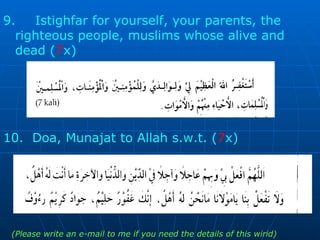 9. Istighfar for yourself, your parents, the
righteous people, muslims whose alive and
dead (7x)
أَسْتَغْفِرُ اللهَ الْعَظِيْمَ لِيْ وَلِوَالِدَيَّ وَلِلْمُؤْمِنِيْنَ وَالْمُؤْمِنَاتِ، وَالْمُسْلِمِيْنَ
وَالْمُسْلِمَاتِ، الْأَحْيَاءِ مِنْهُمْ وَالْأَمْوَاتِ. (7 kali)
10. Doa, Munajat to Allah s.w.t. (7x)
اَللَّهُمَّ افْعَلْ بِيْ وَبِهِمْ عَاجِلًا وَآجِلًا فِيْ الدِّيْنِ وَالدُّنْيَا وَالآخِرَةِ مَا أَنْتَ لَهُ أَهْلٌ،
وَلَا تَفْعَلْ بِنَا يَامَوْلَانَا مَانَحْنُ لَهُ أَهْلٌ، إِنَّكَ غَفُوْرٌ حَلِيْمٌ، جَوَادٌ كَرِيْمٌ رَءُوْفٌ
(Please write an e-mail to me if you need the details of this wirid)